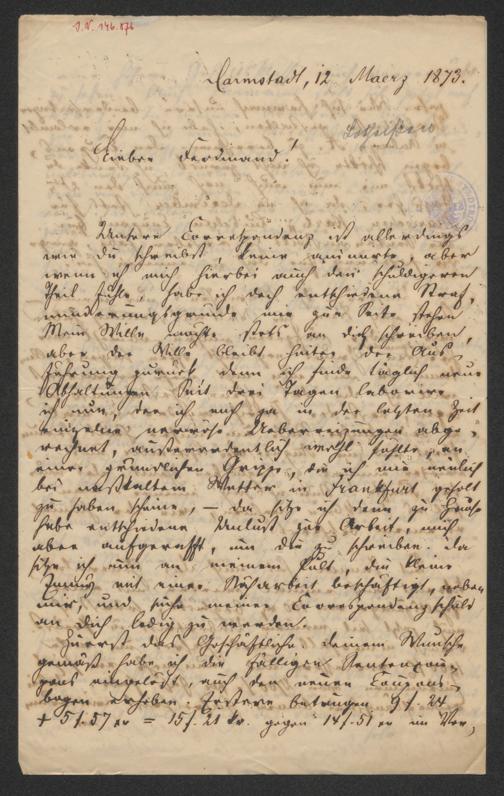 J.N. 146.876
Darmstadt, 12 Maerz 1873.
Lieber Ferdinand!
Unsere Correspondenz ist allerdings
wie Du schreibst, keine animirte, aber
wenn ich mich hierbei auch den schuldigeren
Theil fühle, habe ich doch entschiedene Straf-
minderungsgründe mir zur Seite stehen
Mein Wille mochte stets an Dich schreiben,
aber der Wille bleibt hinter der Aus-
führung zurück denn ich finde täglich neue
Abhaltungen Seit drei Tagen laborire
ich nun, der ich mich ja in der letzten Zeit
einzelne nervöse Ueberreizungen abge-
rechnet, außerordentlich wohl fühlte, an
einer gründlichen Grippe, die ich mir neulich
bei naßkaltem Wetter in Frankfurt geholt
zu haben scheine, — da sitze ich denn zu Hause
habe entschiedene Unlust zur Arbeit, mich
aber aufgerafft, um Dir zu schreiben. Da
sitze ich nun an meinem Pult, die kleine
Fanny mit einer Näharbeit beschäftigt, neben
mir, und suche meiner Correspondenzschuld
an Dich ledig zu werden.
Zuerst das Geschäftliche deinem Wunsche
gemäß habe ich die fälligen Rentencou-
pons eingelöst, auch den neuen Coupons-
bogen erhoben. Erstere betrugen 9 f. 24
+ 5 f. 57 er = 15 f. 21 kr. gegen 14 f. 51 er im Vor-